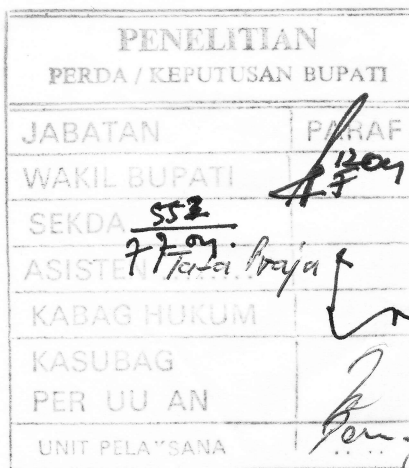 PENELITIAN
PERDA / KEPUTUSAN BUPATI
JABATAN PARAF
WAKIL BUPATI
SEKDA
ASISTEN Tata Praja
KABAG HUKUM
KASUBAG
PER UU AN
UNIT PELAKSANA